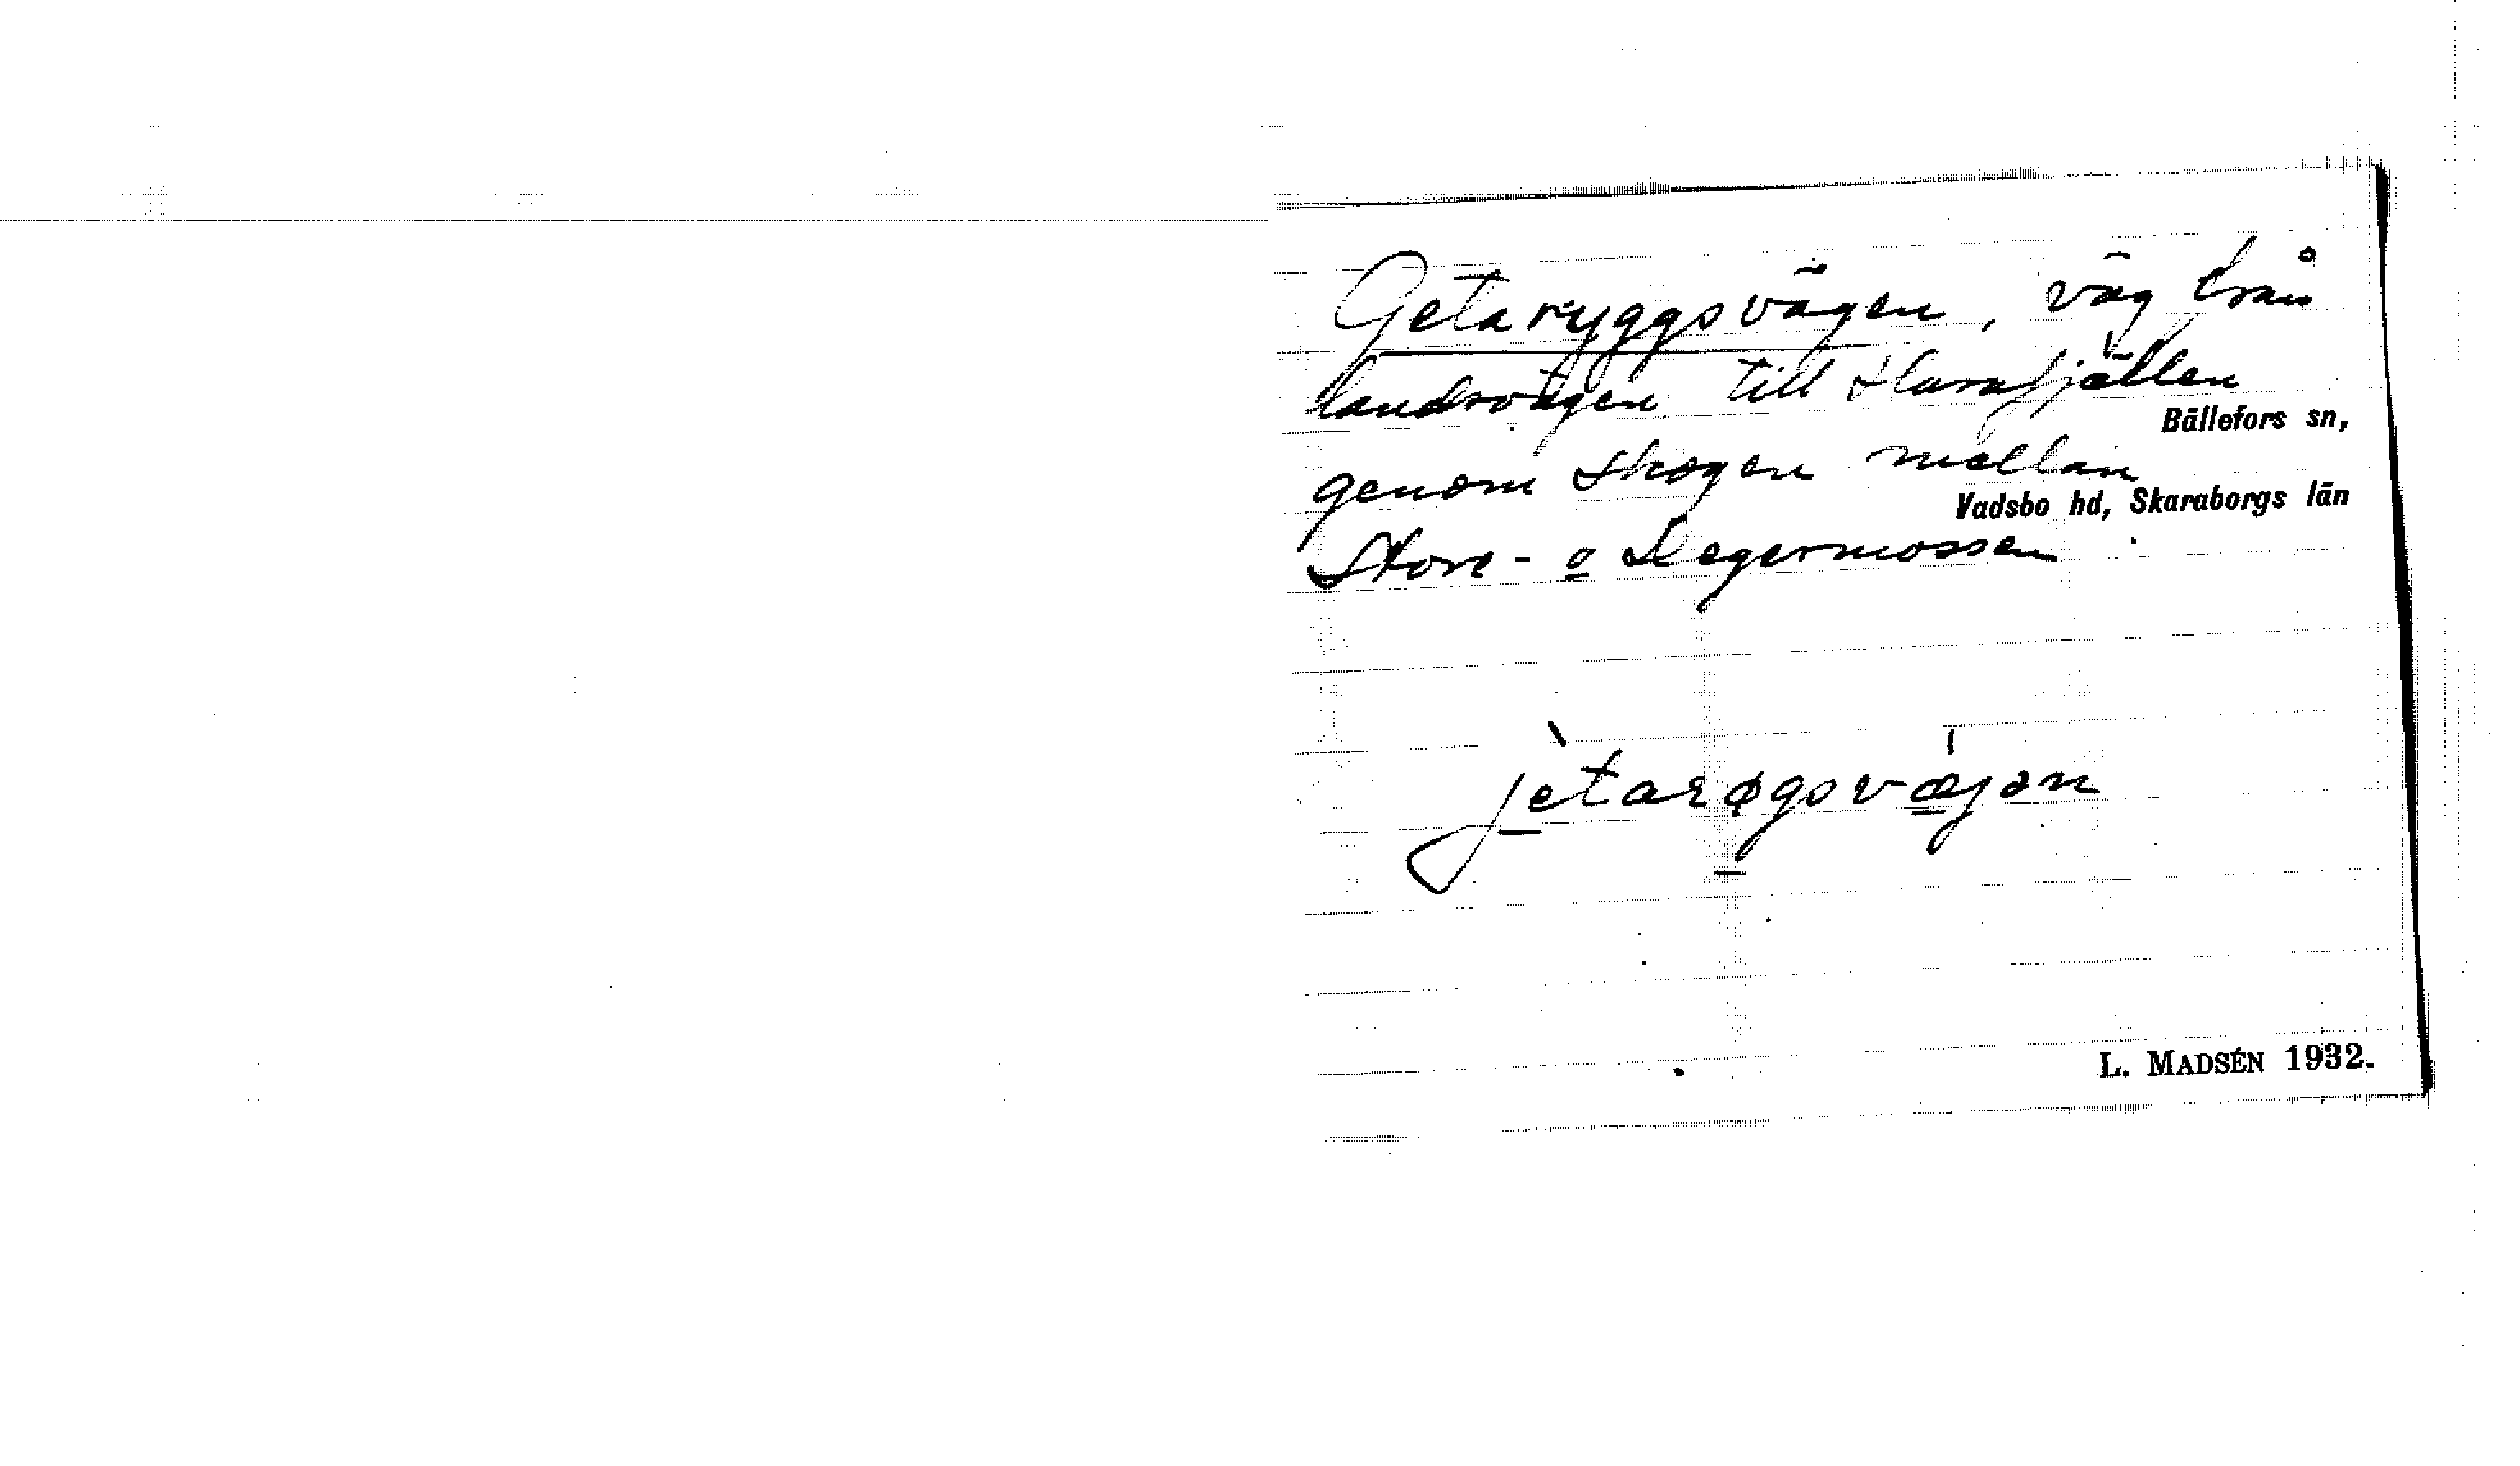 Getaryggsvägen, väg från
landsvägen till Harafjällen
Bällefors sn,
genom skogen mellan
Vadsbo hd, Skaraborgs län
Store- o Degermossen
jètarøgsvæ̍jən
L. MADSÉN 1932.